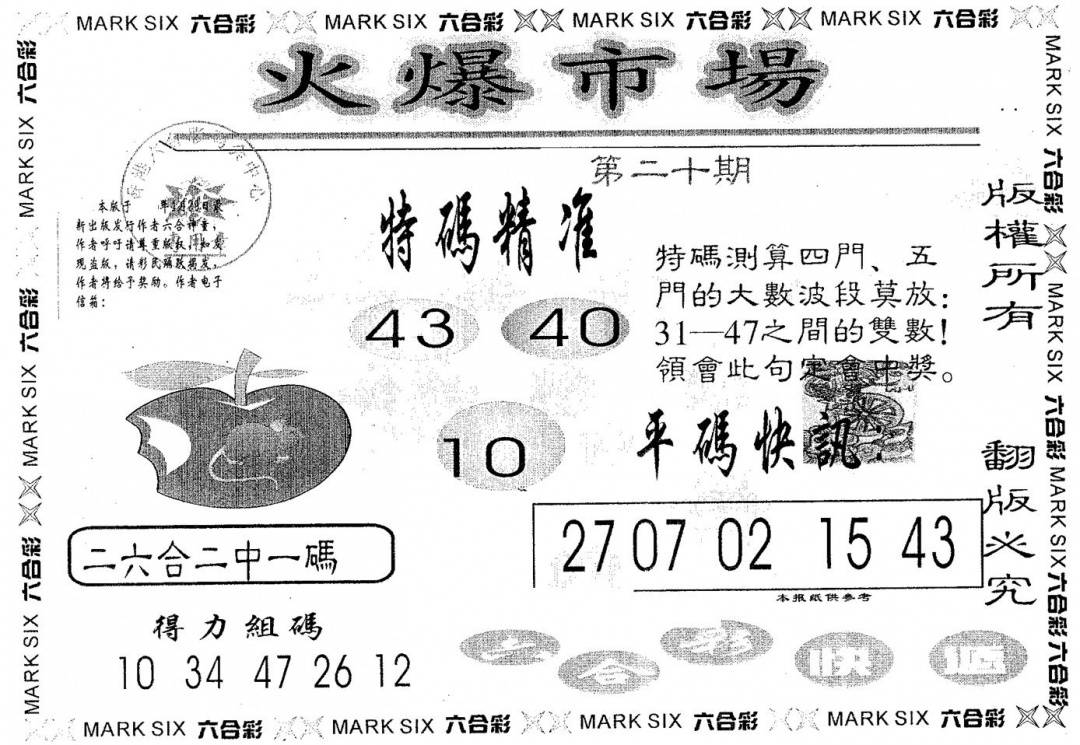 MARK SIX 六合彩 MARK SIX 六合彩 MARK SIX 六合彩 MARK SIX 六合彩
火爆市場
第二十期
特碼精准
本版于 年1月20日最
新出版发行作者六合神童，
作者呼吁请尊重版权，如发
现盗版，请彩民踊跃揭发，
作者将给予奖励。作者电子
信箱：
43 40
10
特碼測算四門、五
門的大數波段莫放：
31—47之間的雙數！
領會此句定會中獎。
平碼快訊：
27 07 02 15 43
本报纸供参考
二六合二中一碼
得力組碼
10 34 47 26 12
六合彩快遞
版權所有
翻版必究
MARK SIX 六合彩 MARK SIX 六合彩 MARK SIX 六合彩
MARK SIX 六合彩 MARK SIX 六合彩 MARK SIX 六合彩 六合彩
MARK SIX 六合彩 MARK SIX 六合彩 MARK SIX 六合彩 MARK SIX 六合彩